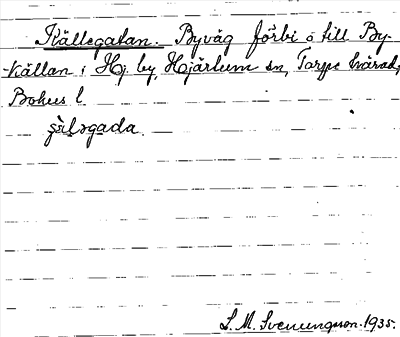 Källegatan. Byväg förbi o till By-
källan i Hj. by, Hjärtum sn, Torpe härad,
Bohus l
L. M. Svenungsson. 1935.